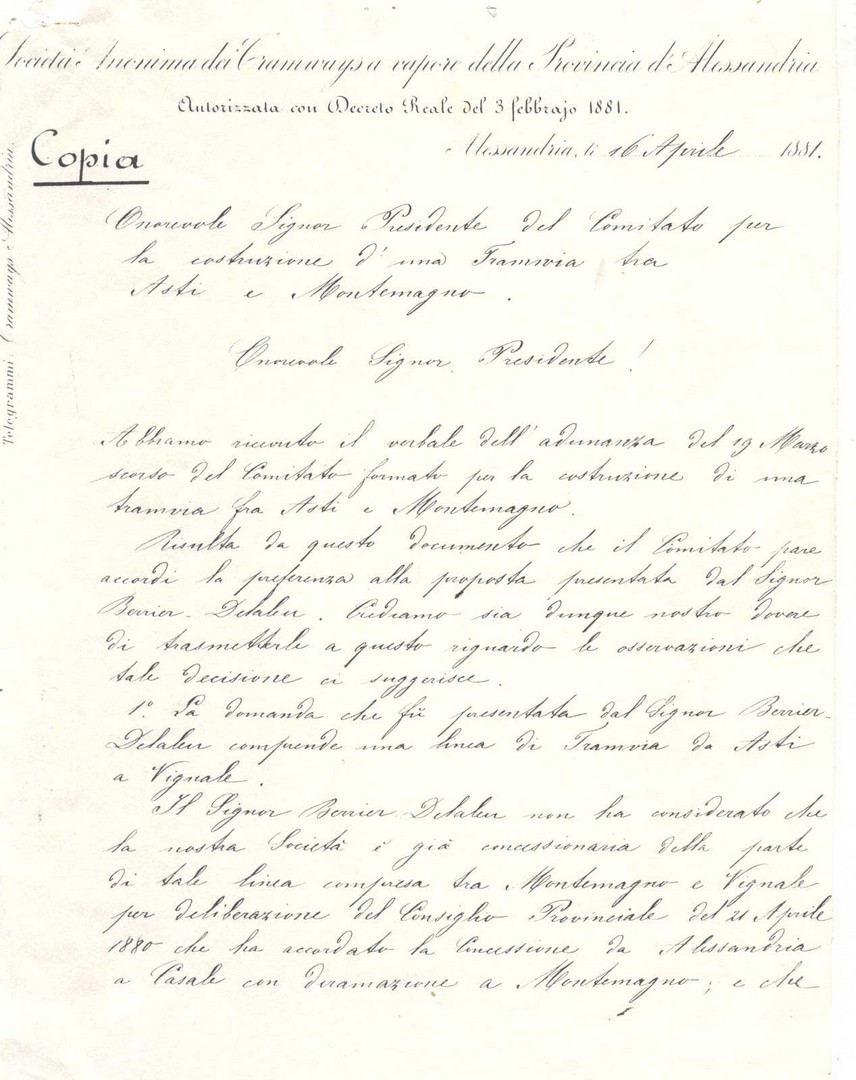 Società Anonima dei Tramways a vapore della Provincia d'Alessandria
Autorizzata con Decreto Reale del 3 febbrajo 1881.
Copia
Alessandria, li 16 Aprile 1881.
Telegrammi: Tramways Alessandria.
Onorevole Signor Presidente del Comitato per
la costruzione d'una Tramvia tra
Asti e Montemagno.
Onorevole Signor Presidente!
Abbiamo ricevuto il verbale dell'adunanza del 19 Marzo
scorso del Comitato formato per la costruzione di una
tramvia fra Asti e Montemagno.
Risulta da questo documento che il Comitato pare
accordi la preferenza alla proposta presentata dal Signor
Berrier-Delaleu. Crediamo sia dunque nostro dovere
di trasmetterle a questo riguardo le osservazioni che
tale decisione ci suggerisce.
1º La domanda che fù presentata dal Signor Berrier-
Delaleu comprende una linea di Tramvia da Asti
a Vignale.
Il Signor Berrier Delaleu non ha considerato che
la nostra Società è già concessionaria della parte
di tale linea compresa tra Montemagno e Vignale
per deliberazione del Consiglio Provinciale del 21 Aprile
1880 che ha accordato la Concessione da Alessandria
a Casale con diramazione a Montemagno; e che